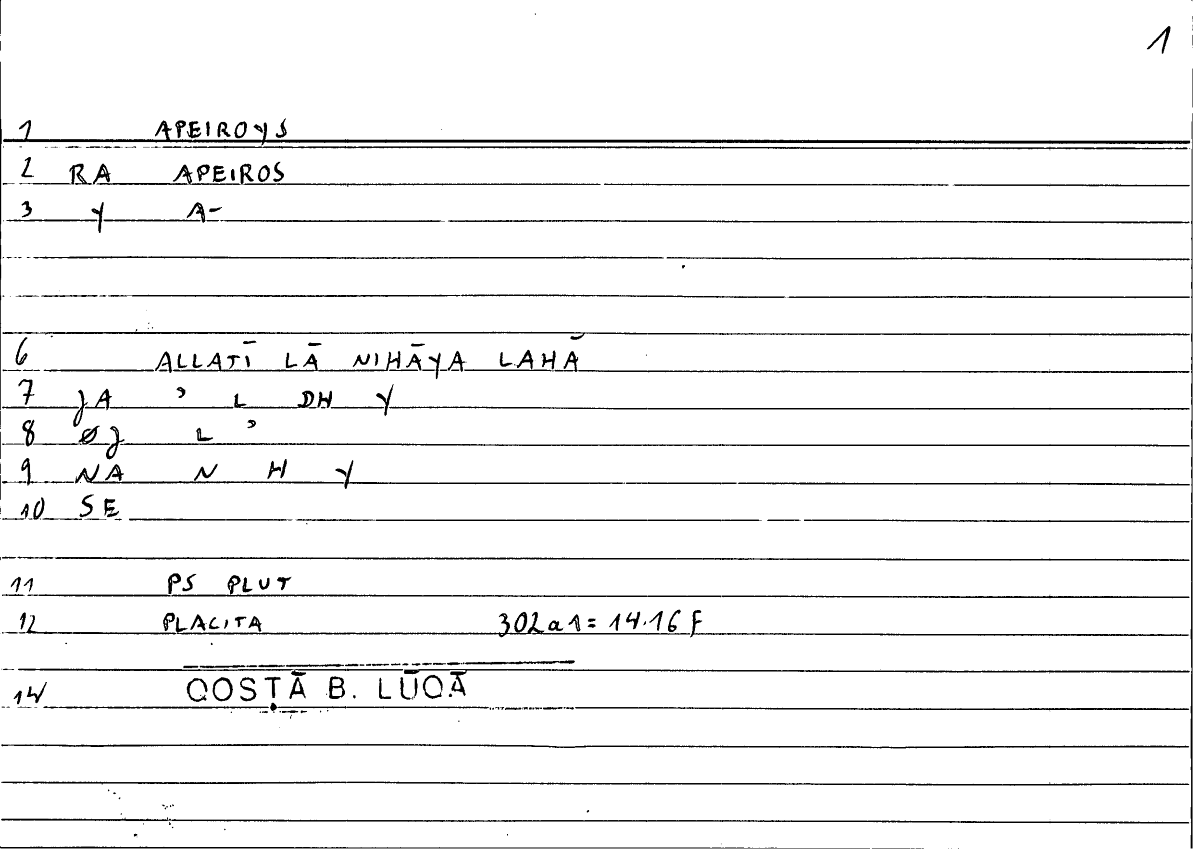 1
1 APEIROYS
2 RA APEIROS
3 Y A-
6 ALLATĪ LĀ NIHĀYA LAHĀ
7 JA ʾ L DH Y
8 ØJ L ʾ
9 NA N H Y
10 SE
11 PS PLUT
12 PLACITA 302a1 = 14.16 f
14 QOSṬĀ B. LŪQĀ